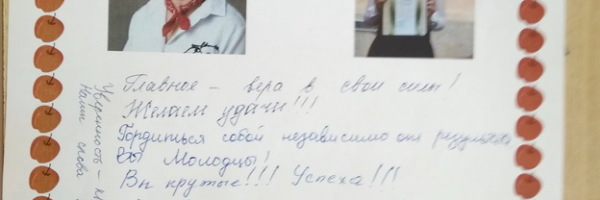 Главное – вера в свои силы!
Желаем удачи!!!
Гордиться собой независимо от результата
Вы Молодцы!
Вы крутые!!! Успеха!!!
Уверенность –
Наши слова